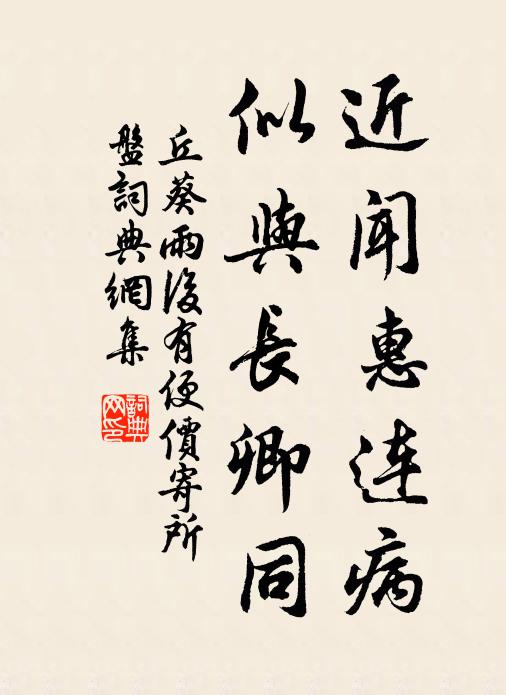 近闻惠连病
似與長卿同
丘葵雨後有便價寄所
盤詞典網集
詞典网印